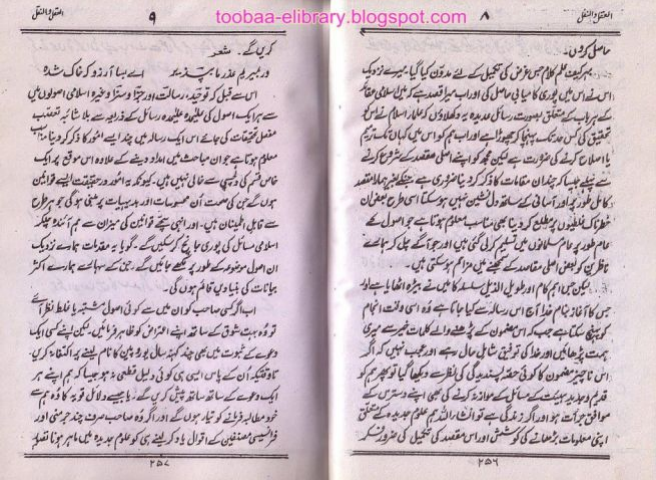 toobaa-elibrary.blogspot.com
العقل والنقل ۸
حاصل کردی۔
بہرکیف علم کلام جس غرض کی تکمیل کے لئے مدوّن کیا گیا، میرے نزدیک
اس نے اس میں پوری کامیابی حاصل کی اور اب میرا قصد ہے کہ میں اسلامی عقائد
کے ہر باب کے متعلق بصورت رسائل جدیدہ یہ دکھلاؤں کہ علماء اسلام نے اس کو
تحقیق کی کس حد تک پہنچا کر چھوڑا ہے اور اب ہم کو اس میں کہاں تک ترمیم
یا اصلاح کرنے کی ضرورت ہے لیکن مجھ کو اپنے اصلی مقصد کے شروع کرنے
سے پہلے جیسا کہ چند ان مقامات کا ذکر کر دینا ضروری ہے جنکے بغیر ہمارا مقصد
کامل طور پر اور آسانی کے ساتھ دل نشین نہیں ہو سکتا اسی طرح بعض ان
خطرناک غلطیوں پر مطلع کر دینا بھی مناسب معلوم ہوتا ہے جو اصول کے
عام طور پر عام مسلمانوں میں تسلیم کر لی گئی ہیں اور جو آگے چل کر ہمارے
ناظرین کو بعض اصلی مقاصد کے سمجھنے میں مزاحم ہو سکتی ہیں۔
لیکن جس اہم کام اور طویل الذیل سلسلہ کا میں نے بیڑہ اٹھایا ہے اور
جس کا آغاز بنام خدا آج اس رسالہ سے کیا جاتا ہے وہ اسی وقت انجام
کو پہنچ سکتا ہے جب کہ اس مضمون کے پڑھنے والے کلمات خیر سے میری
ہمت بڑھائیں اور خدا کی توفیق شامل حال رہے اور عجب نہیں کہ اگر
اس ناچیز مضمون کا کوئی حصہ پسندیدگی کی نظر سے دیکھا گیا تو پھر ہم کو
قدیم و جدید ہیئات کے مسائل کے موازنہ کرنے کی بھی اپنے دسترس کے
موافق جرأت ہو اور اگر زندگی ہے تو انشاء اللہ ہم علوم جدیدہ کے متعلق
اپنی معلومات بڑھانے کی کوشش اور اس مقصد کی تکمیل کی ضرور فکر
۲۵۶
العقل والنقل ۹
کریں گے۔ شعر
ور نمیریم عذر ما بپذیر اے بسا آرزو کہ خاک شدہ
اس سے قبل کہ توحید، رسالت اور جزا و سزا وغیرہ اسلامی اصولوں میں
سے ہر ایک اصول کی علیحدہ علیحدہ رسائل کے ذریعہ سے بلا شائبہ تعصب
مفصل تحقیقات کی جائے اس ایک رسالہ میں چند ایسے امور کا ذکر کر دینا مناسب
معلوم ہوتا ہے جو ان مباحث میں امداد دینے کے علاوہ اس موقع پر ایک
خاص قسم کی دلچسپی سے خالی نہیں ہیں۔ کیونکہ یہ امور در حقیقت ایسے قوانین
ہوں گے جن کی صحت اُن محسوسات اور بدیہیات پر مبنی ہو گی جو ہر طرح
سے قابل اطمینان ہیں۔ اور انہی سچے قوانین کی میزان سے ہم آئندہ چلکر
اسلامی مسائل کی پوری جانچ کر سکیں گے۔ گویا یہ مقدمات ہمارے نزدیک
ان اصول موضوعہ کے طور پر سمجھے جائیں گے۔ جن کے سہارے ہمارے اکثر
بیانات کی بنیادیں قائم ہوں گی۔
اب اگر کسی صاحب کو ان میں سے کوئی اصول مشتبہ یا غلط نظر آئے
تو وہ بہت شوق کے ساتھ اپنے اعتراض کو ظاہر فرمائیں لیکن اپنے کسی ایک
دعوے کے ثبوت میں بھی چند کہنہ سال یوروپین کا نام لینے پر اکتفا نہ کریں۔
تاوقتیکہ اُن کے پاس ایسی ہی کوئی دلیل قطعی نہ ہو جیسا کہ ہم اپنے ہر
ایک دعوے کے ساتھ ساتھ پیش کریں گے۔ یا جیسے دلائل قویہ کا وہ ہم سے
خود مطالبہ فرمانے کو تیار ہوں گے اور اگر وہ صاحب صرف چند جرمنی اور
فرانسیسی مصنفین کے اقوال یاد کر لینے ہی کو علوم جدیدہ میں ماہر ہونا تصور
۲۵۷